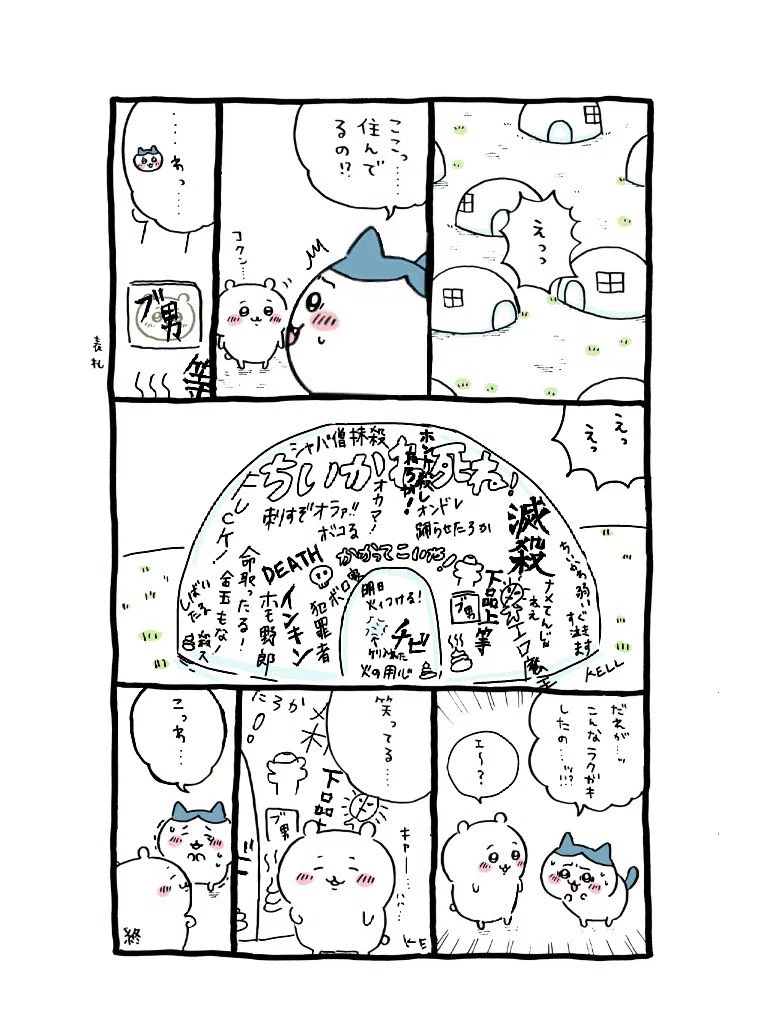 えっっ
ここっ……
住んで
るの!?
コクン…
……
わっ……
ブ男
表札
えっ
えっ
シャバ僧抹殺
ちいかわ死ね!
オカマ!
オンドレ
踊らせたろか
刺すぞオラァ!!
ボコる
滅殺
かかってこいや!
DEATH
命取ったる!
金玉もな!
しばいたる
殺ス
ホモ野郎
インキン
犯罪者
明日
火つける!
チビ
火の用心
ブ男
下品上等
ナメてんじゃねえ
エロ魔王
ちいかわ弱いぞ
すぐ泣きます
KELL
だれが…ッ
こんなラクガキ
したの…ッ!?
エ〜?
笑ってる…
たろか
ブ男
キャー……
KE
こっわ…
終